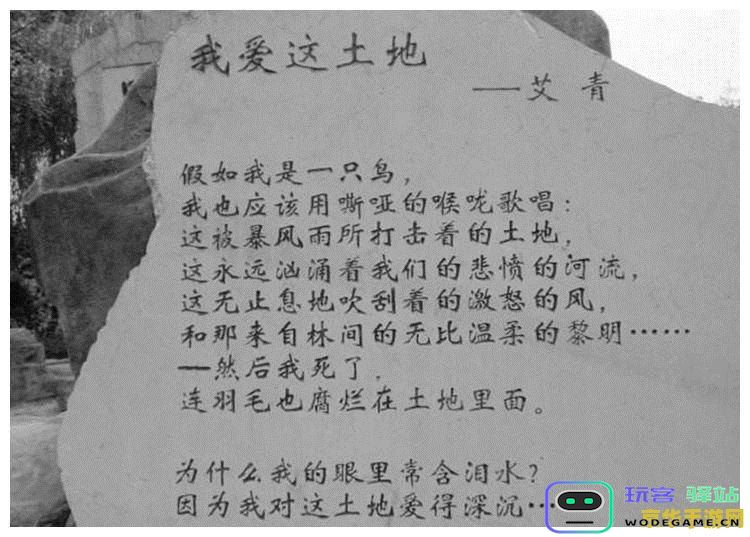 我爱这土地
——艾青
假如我是一只鸟，
我也应该用嘶哑的喉咙歌唱：
这被暴风雨所打击着的土地，
这永远汹涌着我们的悲愤的河流，
这无止息地吹刮着的激怒的风，
和那来自林间的无比温柔的黎明……
—然后我死了，
连羽毛也腐烂在土地里面。
为什么我的眼里常含泪水？
因为我对这土地爱得深沉…
玩客 驿站
WODEGAME.CN